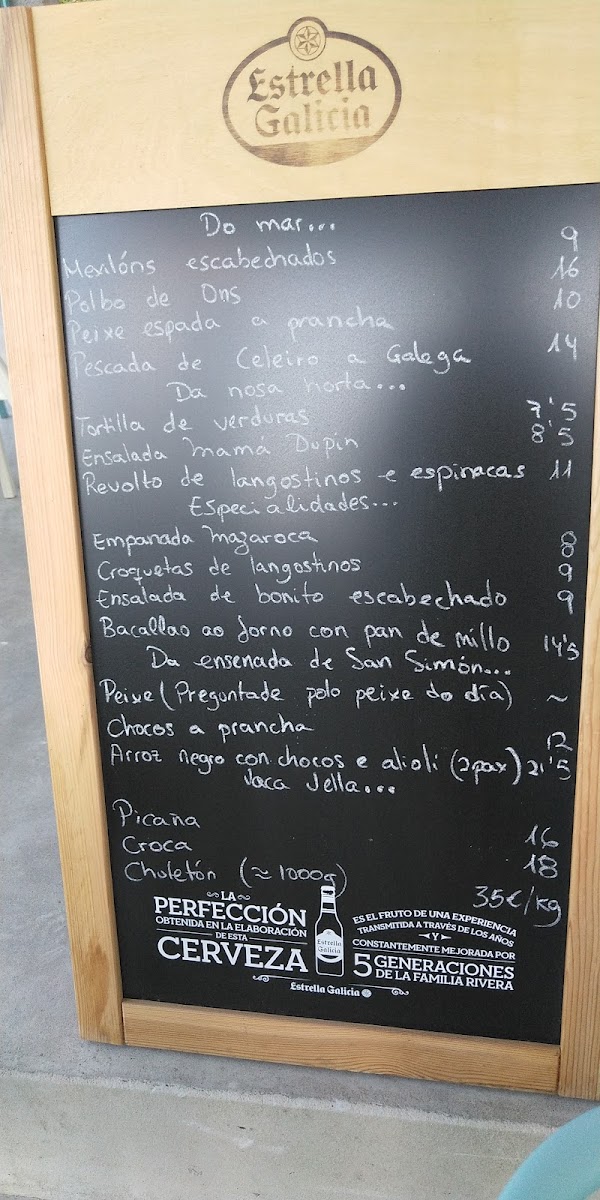 Estrella
Galicia
Do mar...
Mexilóns escabechados 9
Polbo de Ons 16
Peixe espada a prancha 10
Pescada de Celeiro a Galega 14
Da nosa horta...
Tortilla de verduras 7'5
Ensalada Mamá Dupin 8'5
Revolto de langostinos e espinacas 11
Especialidades...
Empanada Mazaroca 8
Croquetas de langostinos 9
Ensalada de bonito escabechado 9
Bacallao ao forno con pan de millo 14'5
Da ensenada de San Simón...
Peixe (Preguntade polo peixe do día) ~
Chocos a prancha 12
Arroz negro con chocos e alioli (2pax) 21'5
Vaca Vella...
Picaña 16
Croca 18
Chuletón (≈ 1000g) 35€/kg
LA
PERFECCIÓN
OBTENIDA EN LA ELABORACIÓN
DE ESTA
CERVEZA
Estrella
Galicia
ES EL FRUTO DE UNA EXPERIENCIA
TRANSMITIDA A TRAVÉS DE LOS AÑOS
Y
CONSTANTEMENTE MEJORADA POR
5 GENERACIONES
DE LA FAMILIA RIVERA
Estrella Galicia